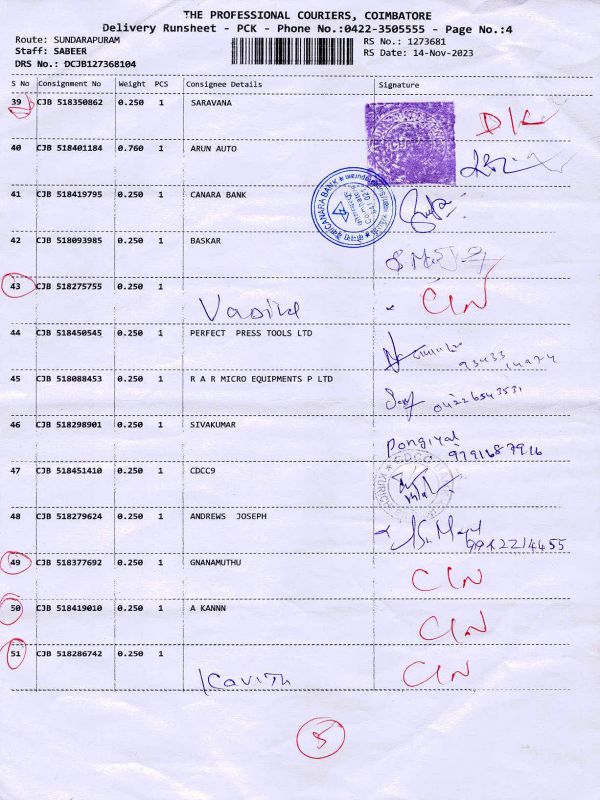 THE PROFESSIONAL COURIERS, COIMBATORE
Delivery Runsheet - PCK - Phone No.:0422-3505555 - Page No.:4
Route: SUNDARAPURAM RS No.: 1273681
Staff: SABEER RS Date: 14-Nov-2023
DRS No.: DCJB127368104
S No Consignment No Weight PCS Consignee Details Signature
39 CJB 518350862 0.250 1 SARAVANA D/L
40 CJB 518401184 0.760 1 ARUN AUTO
41 CJB 518419795 0.250 1 CANARA BANK
CANARA BANK
42 CJB 518093985 0.250 1 BASKAR
43 CJB 518275755 0.250 1 CIN
44 CJB 518450545 0.250 1 PERFECT PRESS TOOLS LTD
45 CJB 518088453 0.250 1 R A R MICRO EQUIPMENTS P LTD
04226543531
46 CJB 518298901 0.250 1 SIVAKUMAR Pongiyal
9791687916
47 CJB 518451410 0.250 1 CDCC9
48 CJB 518279624 0.250 1 ANDREWS JOSEPH
49 CJB 518377692 0.250 1 GNANAMUTHU CIN
50 CJB 518419010 0.250 1 A KANNN CIN
51 CJB 518286742 0.250 1 CIN
Kavith
5